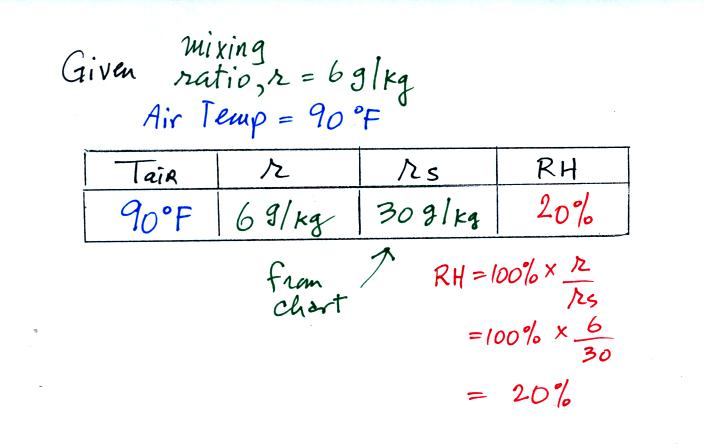 Given mixing
ratio, r = 6 g/kg
Air Temp = 90 °F
TAIR r rs RH
90°F 6 g/kg 30 g/kg 20%
from
chart
RH = 100% × r/rs
= 100% × 6/30
= 20%